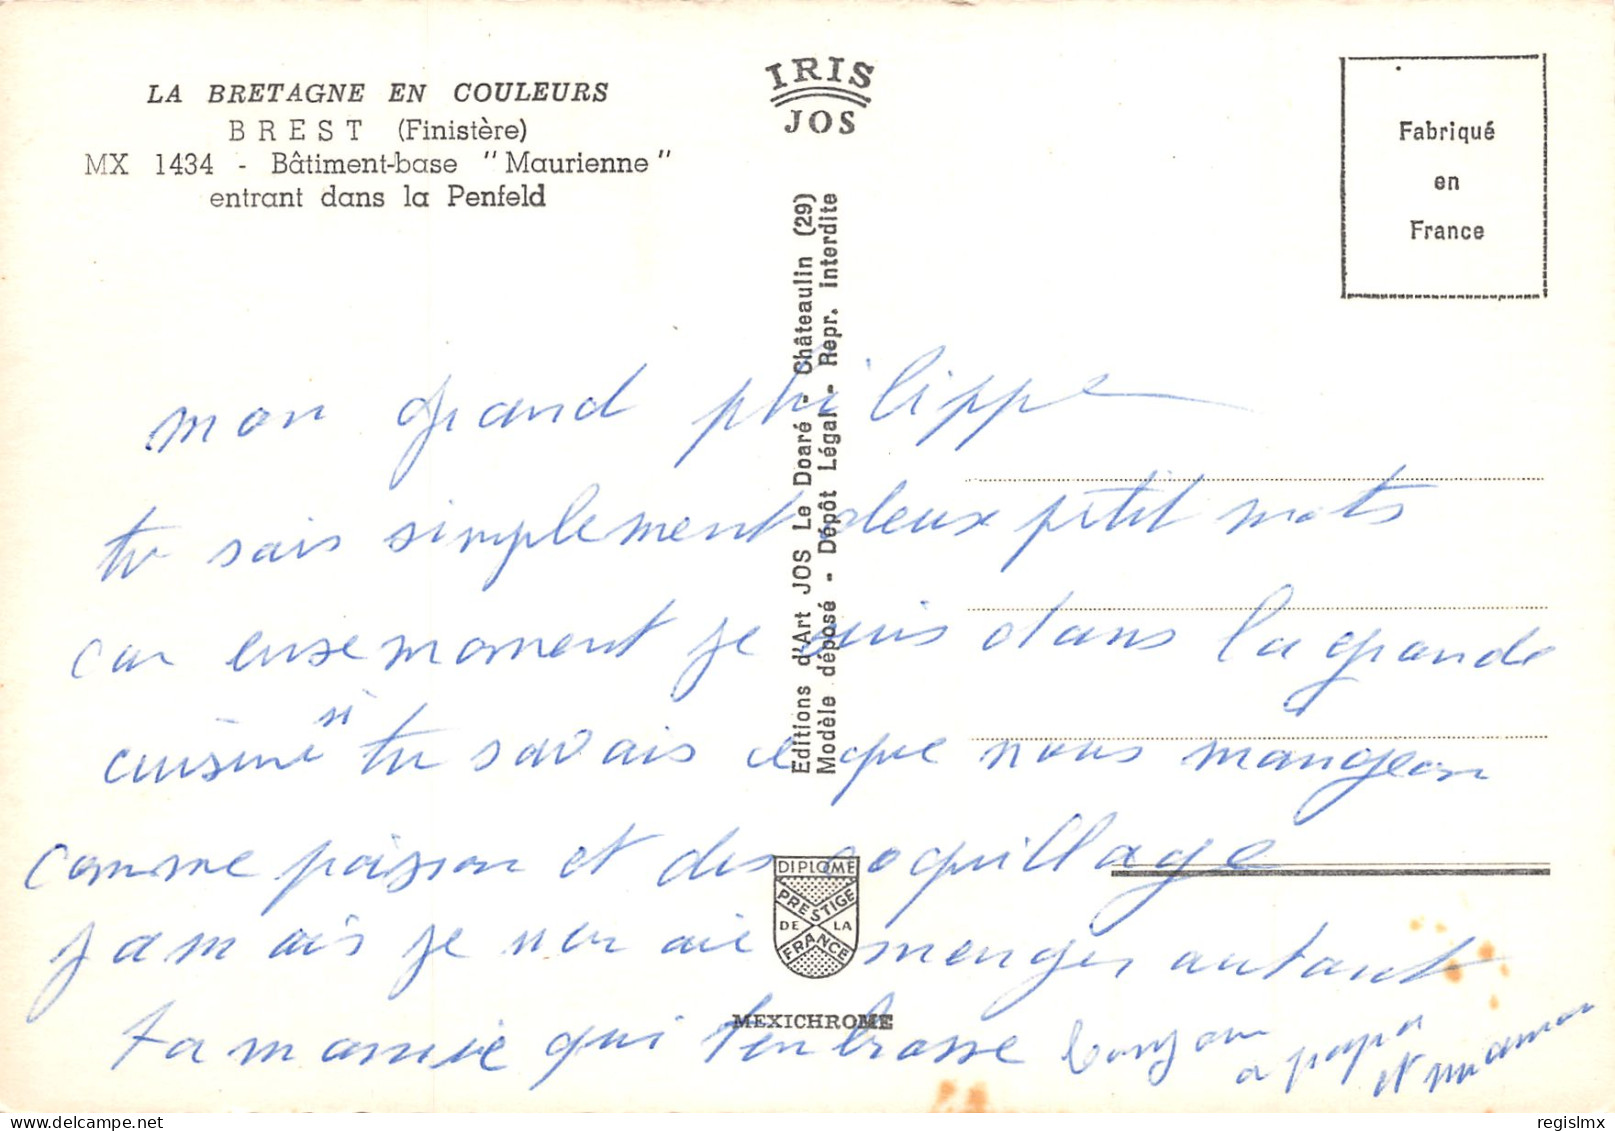 LA BRETAGNE EN COULEURS
BREST (Finistère)
MX 1434 - Bâtiment-base "Maurienne"
entrant dans la Penfeld
IRIS
JOS
Fabriqué
en
France
Editions d'Art JOS Le Doaré - Châteaulin (29)
Modèle déposé - Dépôt Légal - Repr. Interdite
mon grand philippe
tu sais simplement deux petit mots
car ense moment je suis dans la grande
cuisine si tu savais ce que nous mangeon
comme poisson et des coquillage
jamais je nen aie manger autant
ta mamie qui t'enbrasse bonjour
a papa
et maman
DIPLOME
PRESTIGE
DE LA
FRANCE
MEXICHROME
regislmx